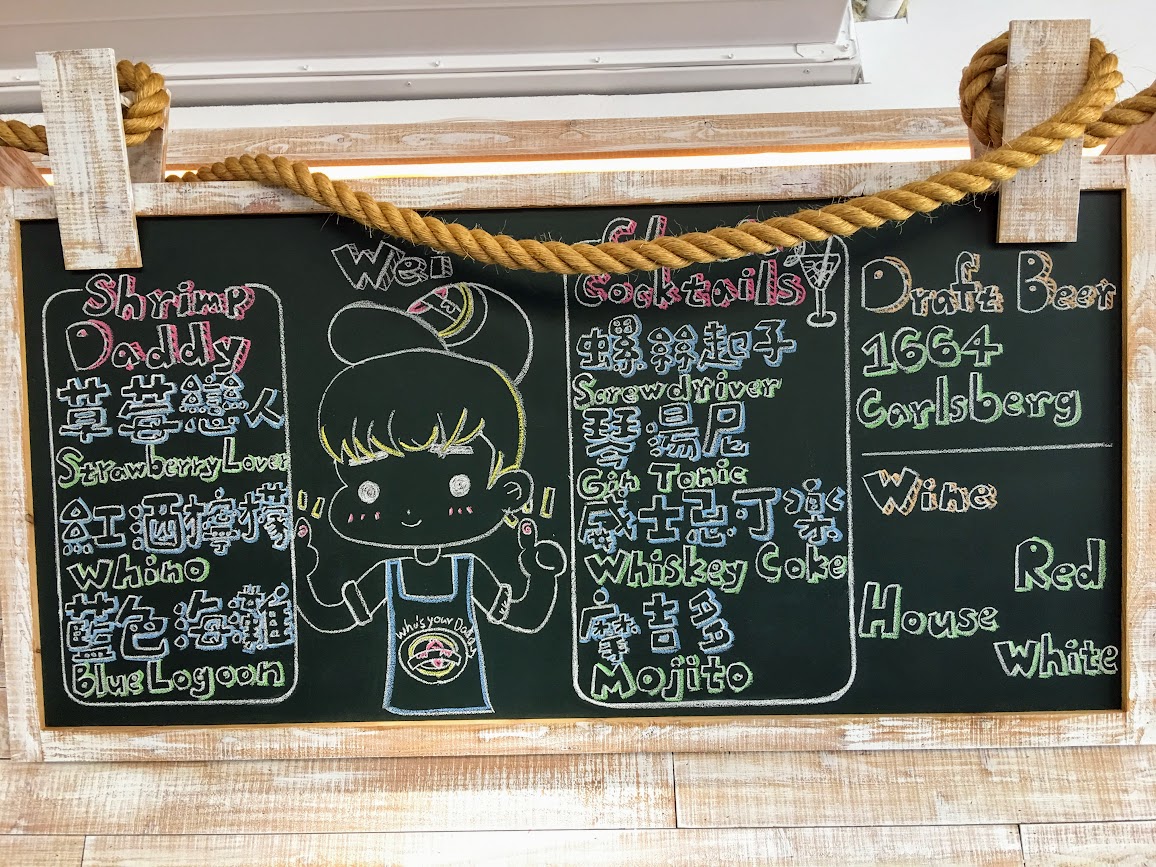 Shrimp
Daddy
草莓戀人
StrawberryLover
紅酒檸檬
Whino
藍色海離
BlueLogoon
Who's your Daddy
Cocktails
螺絲起子
Screwdriver
琴湯尼
Gin Tonic
威士忌可樂
Whiskey Coke
摩吉多
Mojito
Draft Beer
1664
Carlsberg
Wine
Red
House
White